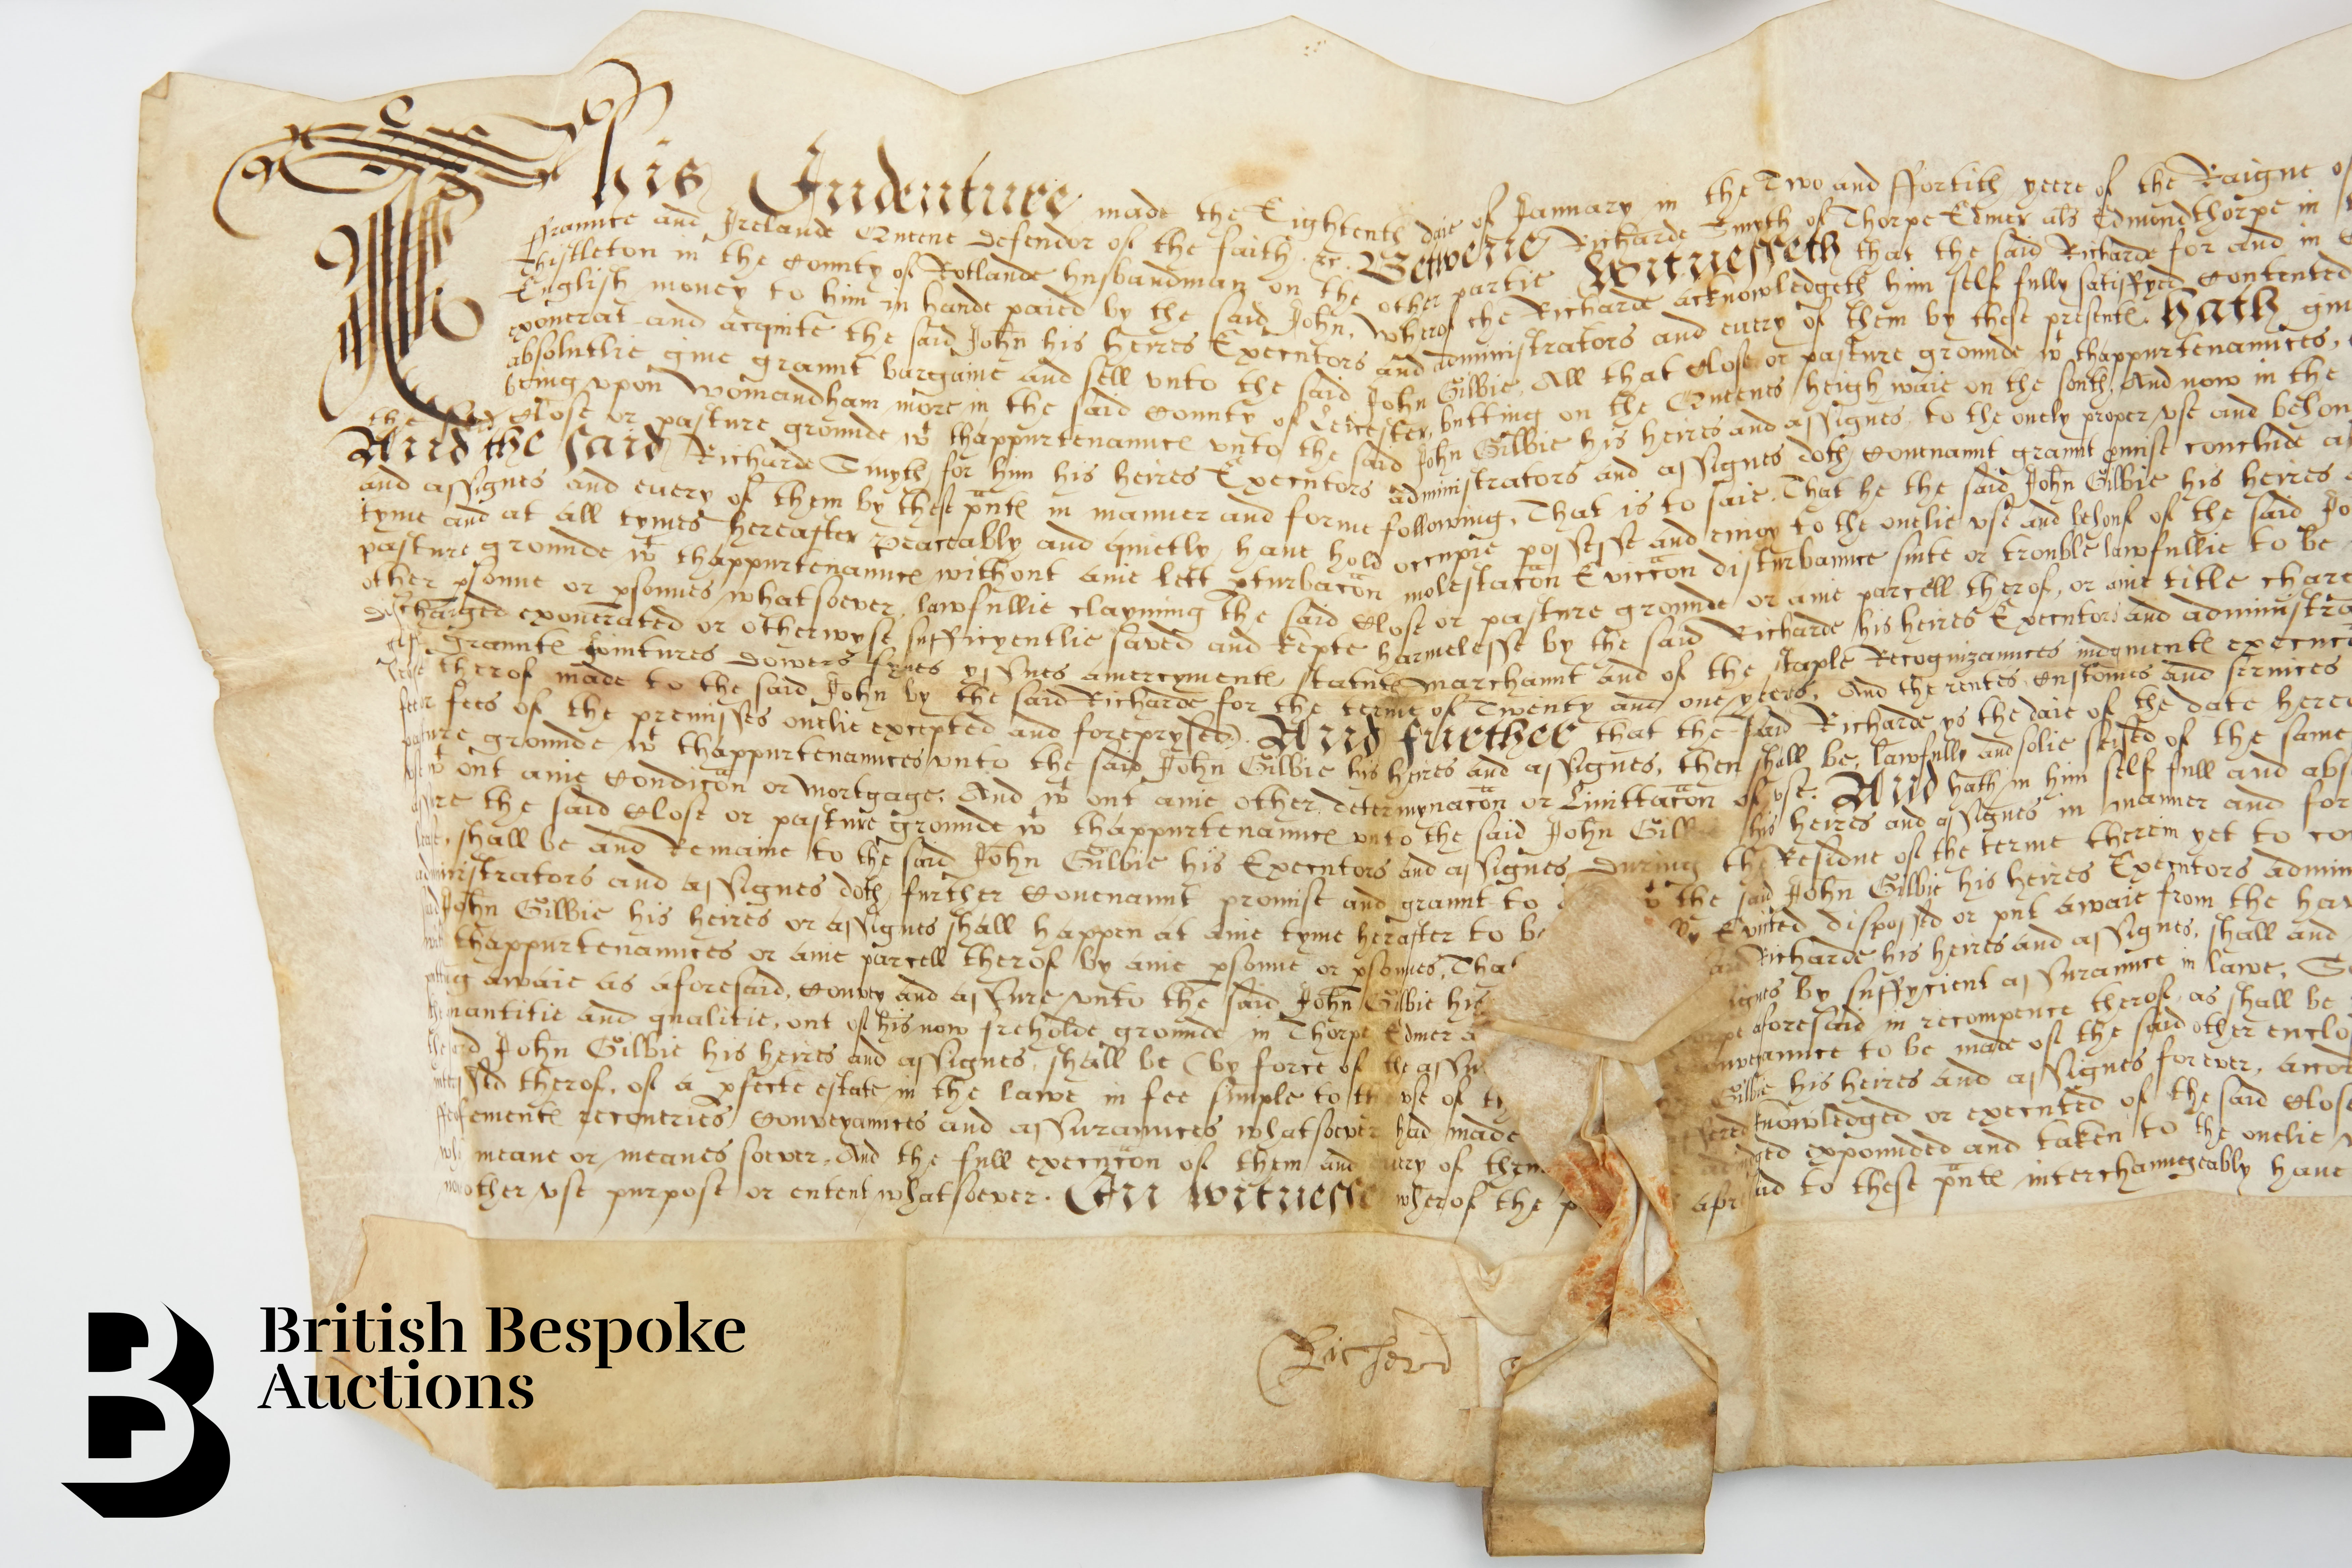 This Indenture made the Eightenth daie of January in the Two and ffortith yeere of the Raigne of
ffraunce and Irelande Queene defendor of the faith &c. Betwene Richarde Smyth of Thorpe Edmer als Edmondthorpe in
Thistleton in the County of Rotlande husbandman on the other partie Witnesseth that the said Richarde for and in
English money to him in hande paied by the said John, wherof the Richarde acknowledgeth him self fully satisfyed Contented
exonerat and acquite the said John his heires Executors and administrators and every of them by these presentes. Hath
absolutlie give graunt bargaine and sell unto the said John Gilbie, All that Close or pasture grounde wt thappurtenaunces,
being upon Womandham more in the said County of Leicester, butting on the Queenes heigh waie on the south, And now in the
the said Close or pasture grounde wt thappurtenaunces unto the said John Gilbie his heires and assignes to the onely proper use and
And the said Richarde Smyth for him his heires Executors administrators and assignes doth Covenaunt graunt pmise conclude
and assignes and every of them by these pntes in manner and forme following, That is to saie, That he the said John Gilbie his heires
tyme and at all tymes hereafter peaceably and quietly have hold occupie possesse and enioy to the onelie use and behouf of the said
pasture grounde wt thappurtenaunces without anie lett pturbacon molestacon Eviccon disturbaunce suite or trouble lawfullie to be
other psonne or psonnes whatsoever, lawfullie clayming the said Close or pasture grounde or anie parcell therof, or anie title
discharged exonerated or otherwyse sufficyentlie saved and kepte harmelesse by the said Richarde his heires Executors and
grauntes Jointures dowers fynes yssues amercymentes statute marchaunt and of the staple Recognizaunces iudgmentes
lease therof made to the said John by the said Richarde for the terme of Twenty and one yeeres, And the rentes Customes and services
feer fees of the premisses onelie excepted and foreprysed). And further that the said Richarde ys the daie of the date
pasture grounde wt thappurtenaunces unto the said John Gilbie his heires and assignes, then shall be, lawfully and solie seised of the same
wt out anie Condicon or mortgage, And wt out anie other determynacon or Limittacon of use. And hath in him self full and
assure the said Close or pasture grounde wt thappurtenaunces unto the said John Gilbie his heires and assignes in manner and
lease, shall be and Remaine to the said John Gilbie his Executors and assignes during the Residue of the terme therein yet to
administrators and assignes doth further Covenaunt promise and graunt to the said John Gilbie his heires Executors
said John Gilbie his heires or assignes shall happen at anie tyme heraster to be Evicted disposssed or put awaie from the
thappurtenaunces or anie parcell therof by anie psonne or psonnes, That Richarde his heires and assignes, shall and
putting awaie as aforesaid, Convey and assure unto the said John Gilbie his by suffycient assuraunce in lawe,
quantitie and qualitie, out of his now freholde grounde in Thorpe Edmer aforesaid in recompence therof, as shall be
the said John Gilbie his heires and assignes, shall be (by force of the to be made of the said other
therof, of a pfecte estate in the lawe in fee simple to the use of Gilbie his heires and assignes forever,
recoveries Conveyaunces and assuraunces whatsoever had made knowledged or executed of the said Close
meane or meanes soever, And the full execucon of them and every of them expounded and taken to the onelie
other use purpose or entent whatsoever. In witnesse wherof the to these pntes interchaungeably have
Richerd
British Bespoke
Auctions